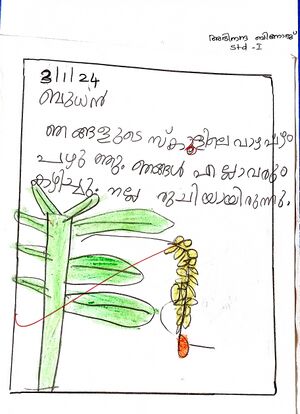 Std - I
3/1/24
ബുധൻ
ഞങ്ങളുടെ സ്കൂളിലെ വാഴപ്പഴം
പഴുത്തു. ഞങ്ങൾ എല്ലാവരും
കഴിച്ചു. നല്ല രുചിയായിരുന്നു.